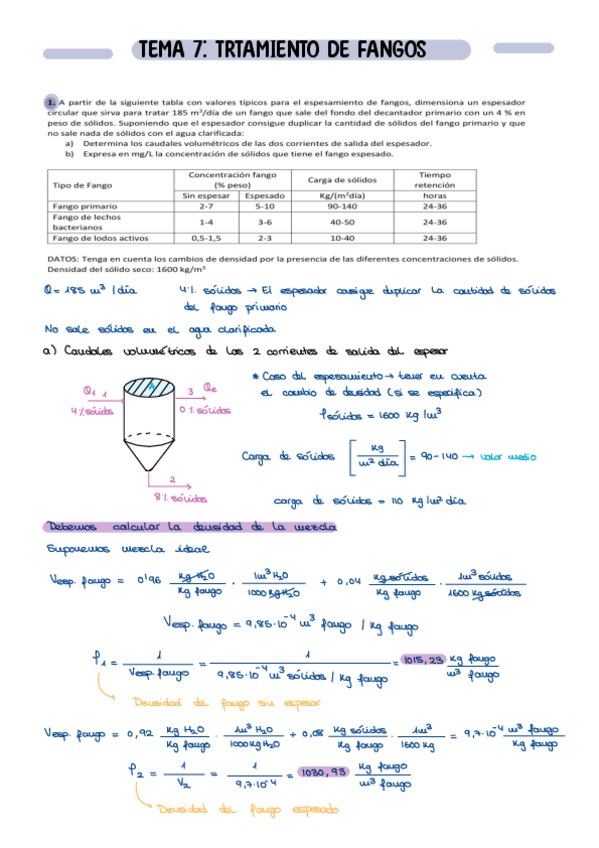 TEMA 7: TRTAMIENTO DE FANGOS
1. A partir de la siguiente tabla con valores típicos para el espesamiento de fangos, dimensiona un espesador
circular que sirva para tratar 185 m³/día de un fango que sale del fondo del decantador primario con un 4 % en
peso de sólidos. Suponiendo que el espesador consigue duplicar la cantidad de sólidos del fango primario y que
no sale nada de sólidos con el agua clarificada:
a) Determina los caudales volumétricos de las dos corrientes de salida del espesador.
b) Expresa en mg/L la concentración de sólidos que tiene el fango espesado.
Tipo de Fango Concentración fango (% peso) Carga de sólidos Tiempo retención
Sin espesar Espesado Kg/(m²día) horas
Fango primario 2-7 5-10 90-140 24-36
Fango de lechos bacterianos 1-4 3-6 40-50 24-36
Fango de lodos activos 0,5-1,5 2-3 10-40 24-36
DATOS: Tenga en cuenta los cambios de densidad por la presencia de las diferentes concentraciones de sólidos.
Densidad del sólido seco: 1600 kg/m³
Q = 185 m³/día 4% sólidos → El espesador consigue duplicar la cantidad de sólidos
del fango primario
No sale sólidos en el agua clarificada
a) Caudales volumétricos de las 2 corrientes de salida del espesor
* Caso del espesamiento → tener en cuenta
el cambio de densidad (si se especifica)
ρsólidos = 1600 Kg/m³
Q1 1
4% sólidos
3 Qe
0% sólidos
A
2
8% sólidos
Carga de sólidos [Kg / m² día] = 90-140 → valor medio
carga de sólidos = 110 Kg/m² día
Debemos calcular la densidad de la mezcla
Suponemos mezcla ideal
Vesp. fango = 0'96 Kg H2O / Kg fango · 1m³ H2O / 1000 Kg H2O + 0,04 Kg sólidos / Kg fango · 1m³ sólidos / 1600 Kg sólidos
Vesp. fango = 9,85·10⁻⁴ m³ fango / Kg fango
ρ1 = 1 / Vesp. fango = 1 / 9,85·10⁻⁴ m³ sólidos / Kg fango = 1015,23 Kg fango / m³ fango
Densidad del fango sin espesar
Vesp. fango = 0,92 Kg H2O / Kg fango · 1m³ H2O / 1000 Kg H2O + 0,08 Kg sólidos / Kg fango · 1m³ / 1600 Kg = 9,7·10⁻⁴ m³ fango / Kg fango
ρ2 = 1 / V2 = 1 / 9,7·10⁻⁴ = 1030,93 Kg fango / m³ fango
Densidad del fango espesado